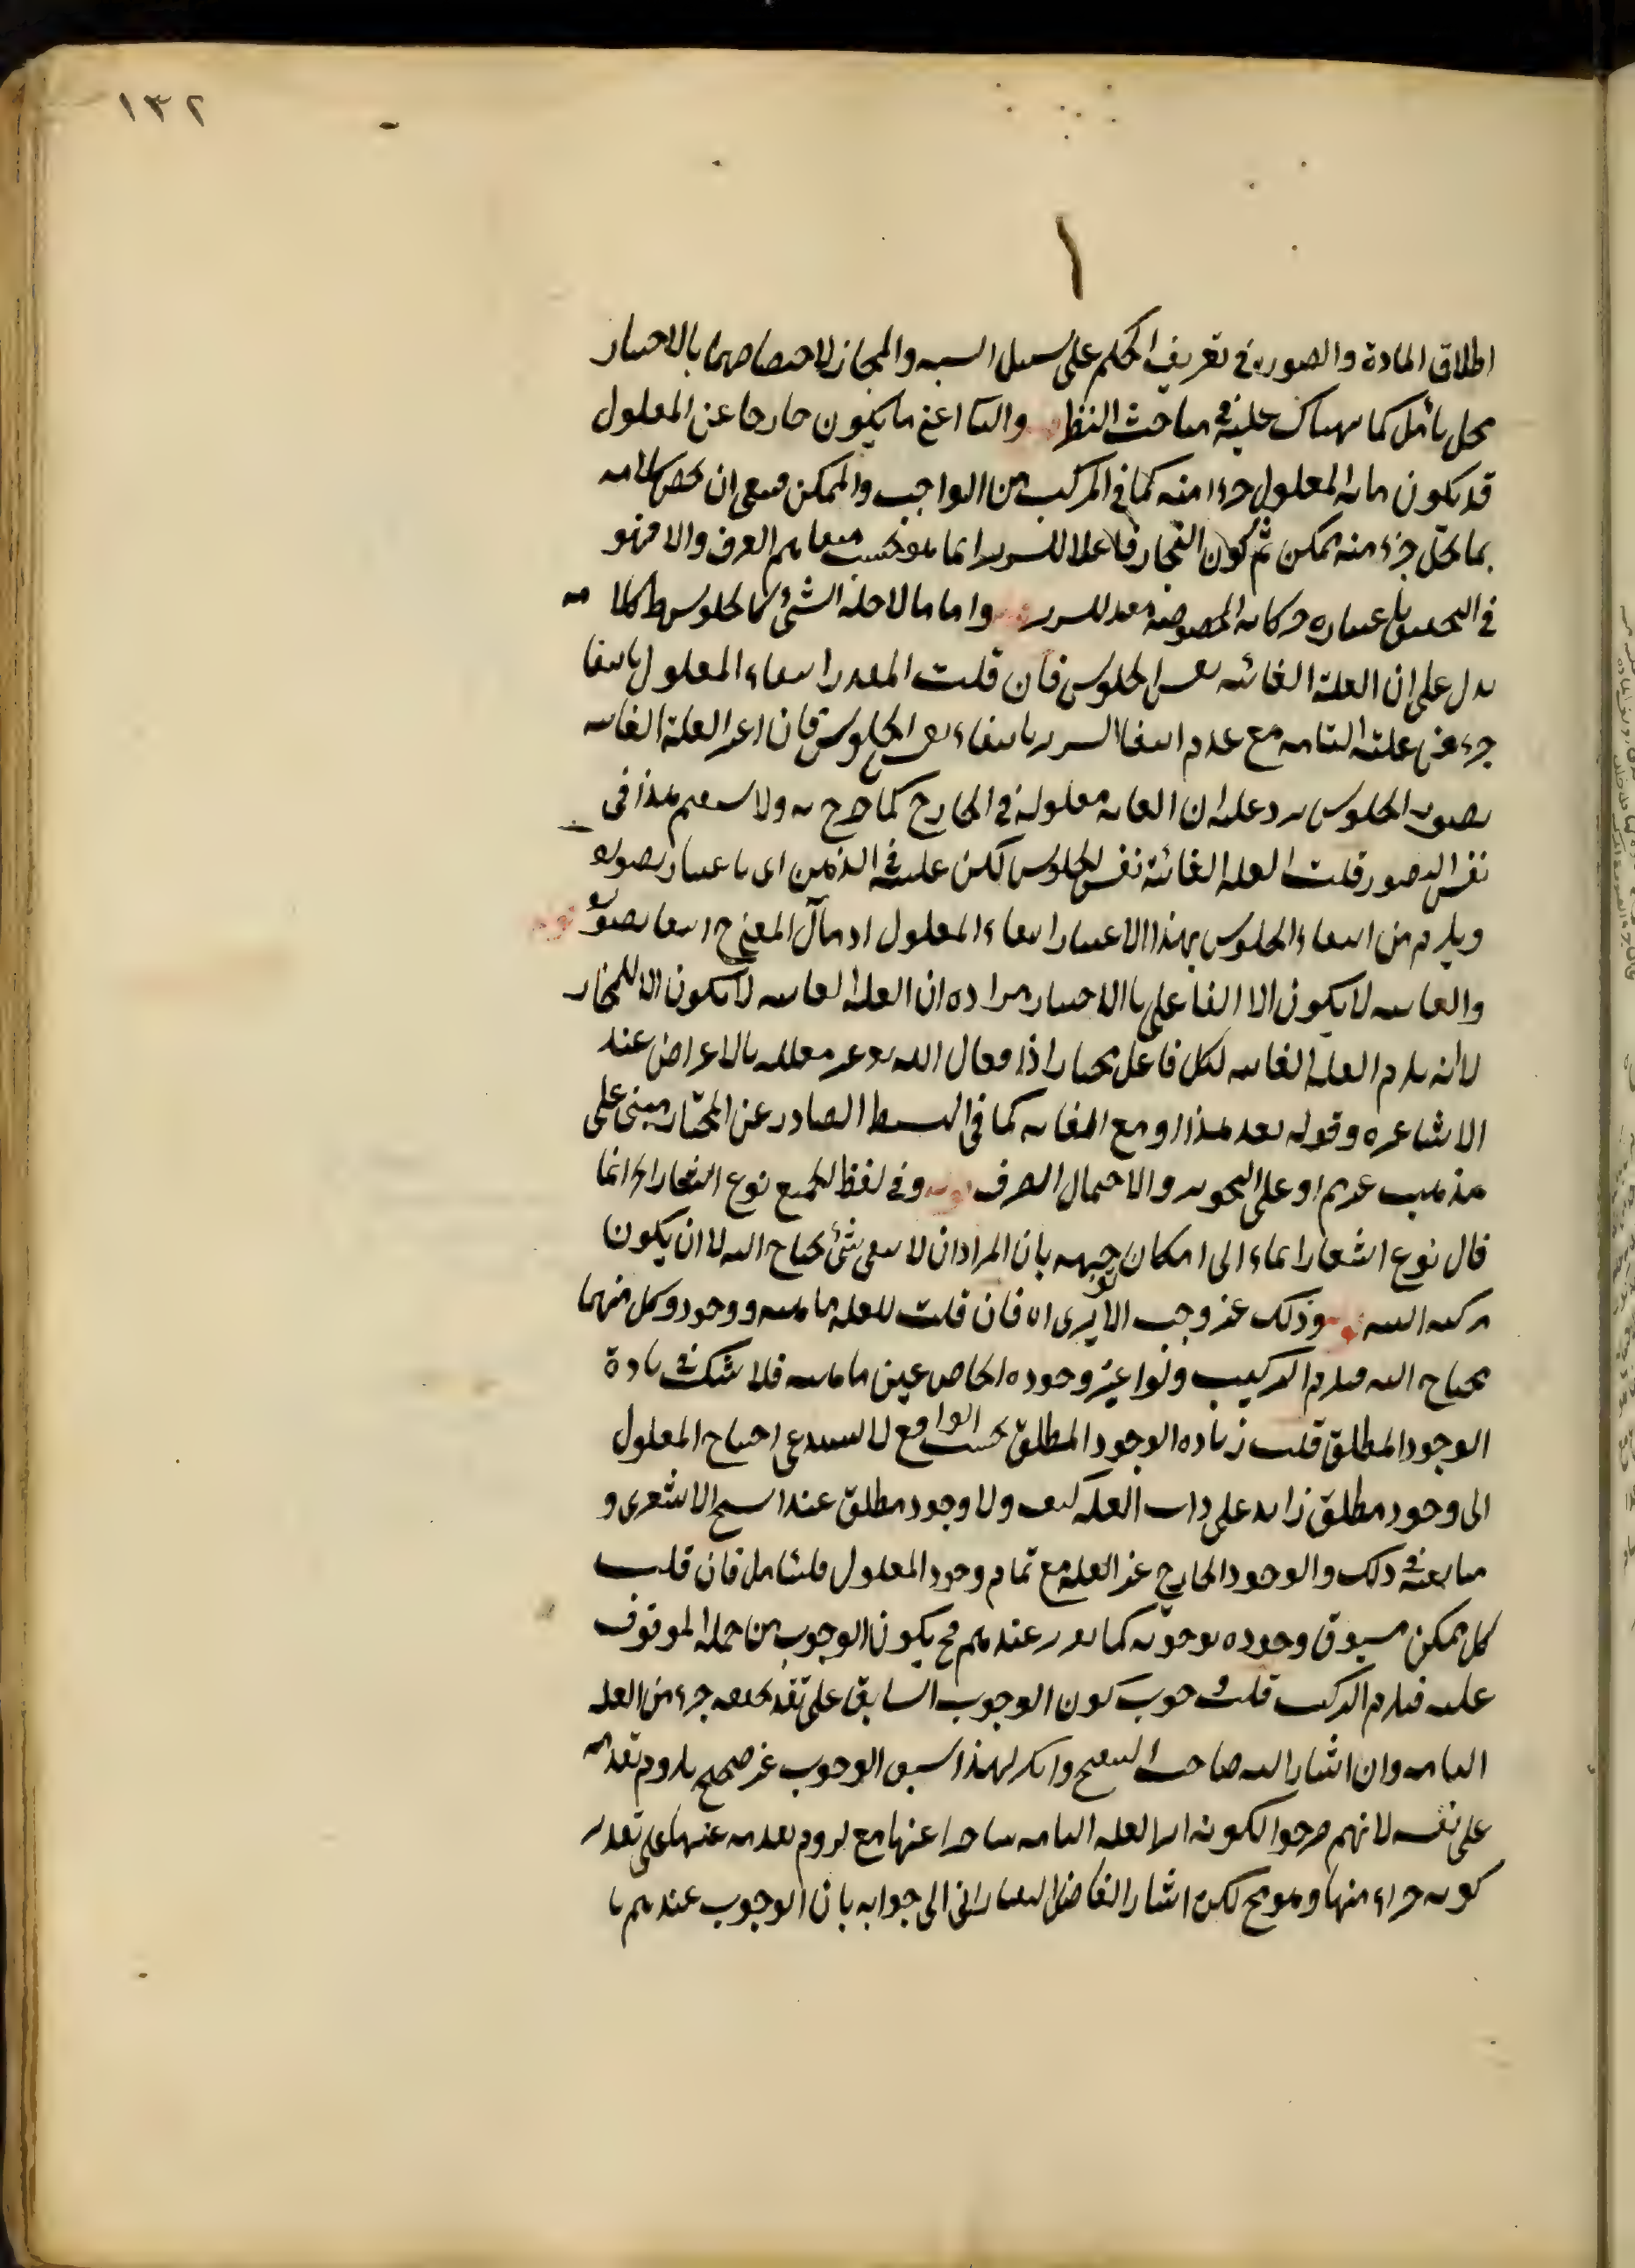 ١٣٢
اطلاق المادة والصورة في تعريف الحكم على سبيل التشبيه والمجاز لاختصاصهما بالاجسام
محل تأمل كما نبهناك عليه في مباحث النظر قوله والثاني اعني ما يكون خارجا عن المعلول
قد يكون ما به المعلول جزءا منه كما في المركب من الواجب والممكن فينبغي ان يخص كلامه
بما كل جزء منه ممكن ثم كون النجار فاعلا للسرير انما هو بحسب متفاهم العرف والا فهو
في التحقيق باعتبار حركاته المخصوصة معد للسرير قوله واما ما لاجله الشئ كالجلوس كلامه
يدل على ان العلة الغائية نفس الجلوس فان قلت المقدر انتفاء المعلول بانتفاء
جزء من علته التامة مع عدم انتفاء السرير بانتفاء نفس الجلوس فان اعتبر العلة الغائية
تصور الجلوس يرد عليه ان الغاية معلولة في الخارج كما صرح به ولا يستقيم هذا في
نفس التصور قلت العلة الغائية نفس الجلوس لكن علته في الذهن اي باعتبار تصوره
ويلزم من انتفاء الجلوس بهذا الاعتبار انتفاء المعلول اذ مآل المعنى ح انتفاء تصوره قوله
والغائية لا يكون الا الفاعل بالاختيار مراده ان العلة الغائية لا تكون الا للمختار
لا انه يلزم العلة الغائية لكل فاعل مختار اذ افعال الله تعالى غير معللة بالاغراض عند
الاشاعرة وقوله بعد هذا او مع الغاية كما في البسيط الصادر عن المختار مبني على
مذهب غيرهم او على التجويز والاحتمال الصرف قوله وفي لفظ الجميع نوع اشعار الخ انما
قال نوع اشعار ايماء الى امكان توجيهه بان المراد ان لا يبقى شئ يحتاج اليه لا ان يكون
مركبة البتة قوله وذلك عن وجب الا يرى اه فان قلت للعلة ماهية ووجود وكل منهما
يحتاج اليه فيلزم التركيب ولو اعتبر وجوده الخاص عين ماهيته فلا شك في زيادة
الوجود المطلق قلت زيادة الوجود المطلق بحسب الواقع لا يستدعي احتياج المعلول
الى وجود مطلق زايد على ذات العلة كيف ولا وجود مطلق عند الشيخ الاشعري و
متابعيه في ذلك والوجود الخارج عن العلة مع تمام وجود المعلول فليتأمل فان قلت
كل ممكن مسبوق وجوده بوجوبه كما تقرر عندهم فح يكون الوجوب من جملة الموقوف
عليه فيلزم التركب قلت وجوب كون الوجوب السابق على تقدير تحققه جزء من العلة
التامة وان اشار اليه صاحب التنقيح وانكر لهذا سبق الوجوب غير صحيح بلزوم تقدمه
على نفسه لانهم صرحوا لكونه اثر العلة التامة متأخرا عنها مع لزوم تقدمه عنها على تقدير
كونه جزءا منها وهو مح لكن اشار الفاضل التفتازاني الى جوابه بان الوجوب عندهم با